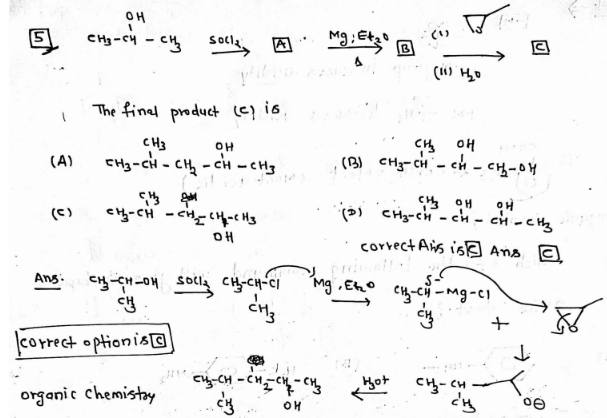 5 CH3-CH-CH3 SOCl2 A Mg, Et2O B (i) O C
OH
Δ (ii) H2O
The final product (C) is
(A) CH3-CH-CH2-CH-CH3 (B) CH3-CH-CH-CH2-OH
CH3 OH CH3 OH
(C) CH3-CH-CH2-CH-CH3 (D) CH3-CH-CH-CH-CH3
CH3 OH CH3 OH OH
correct Ans is C Ans C
Ans: CH3-CH-OH SOCl2 CH3-CH-Cl Mg, Et2O CH3-CH-Mg-Cl O
CH3 CH3 CH3 δ- +
correct option is C
organic chemistry CH3-CH-CH2-CH-CH3 H3O+ CH3-CH O⊖
CH3 OH CH3